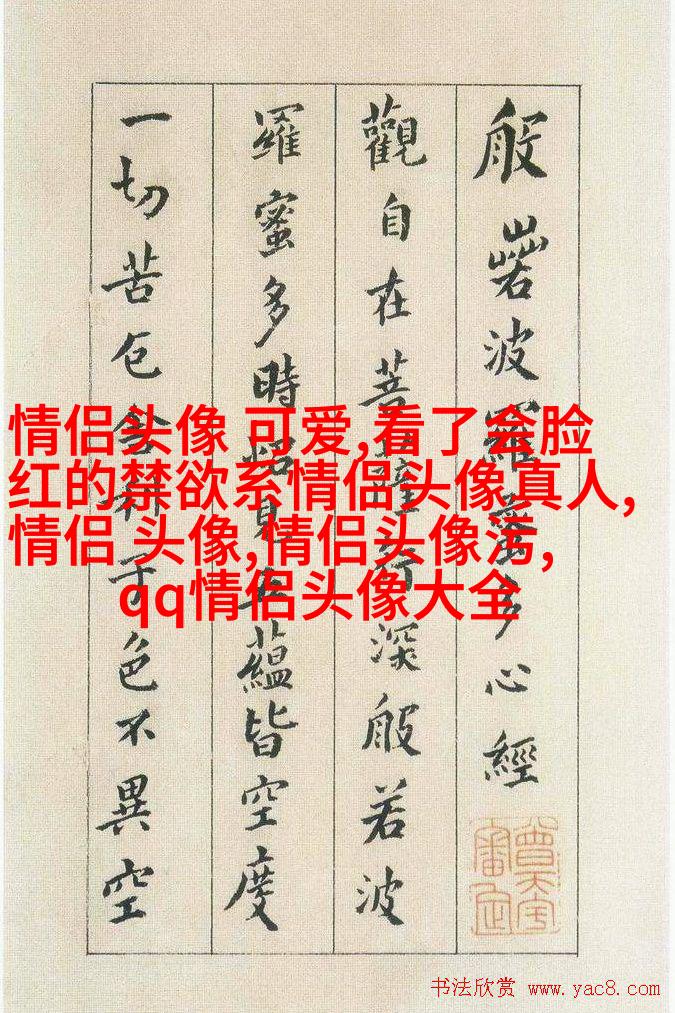 般若波羅蜜多心經
觀自在菩薩行深般若波
羅蜜多時照見五蘊皆空度
一切苦厄舍利子色不異空
情侣头像 可爱,看了会脸
红的禁欲系情侣头像真人,
情侣 头像,情侣头像污,
qq情侣头像大全
书法欣赏 www.yac8.com